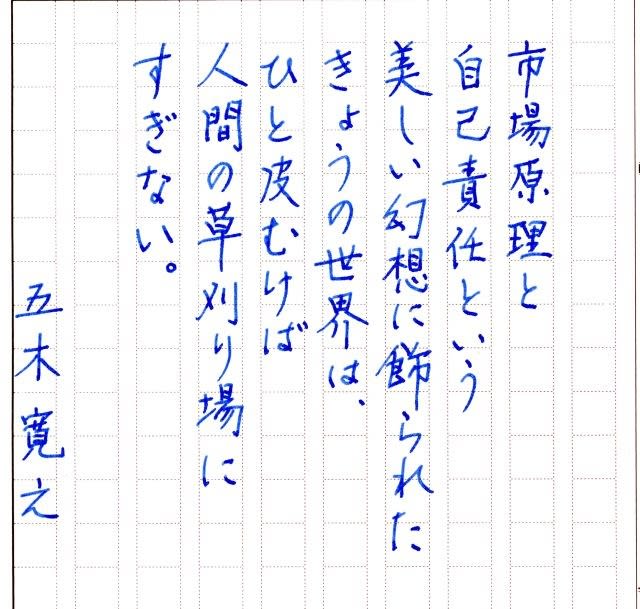 市場原理と
自己責任という
美しい幻想に飾られた
きょうの世界は、
ひと皮むけば
人間の草刈り場に
すぎない。
五木寛之